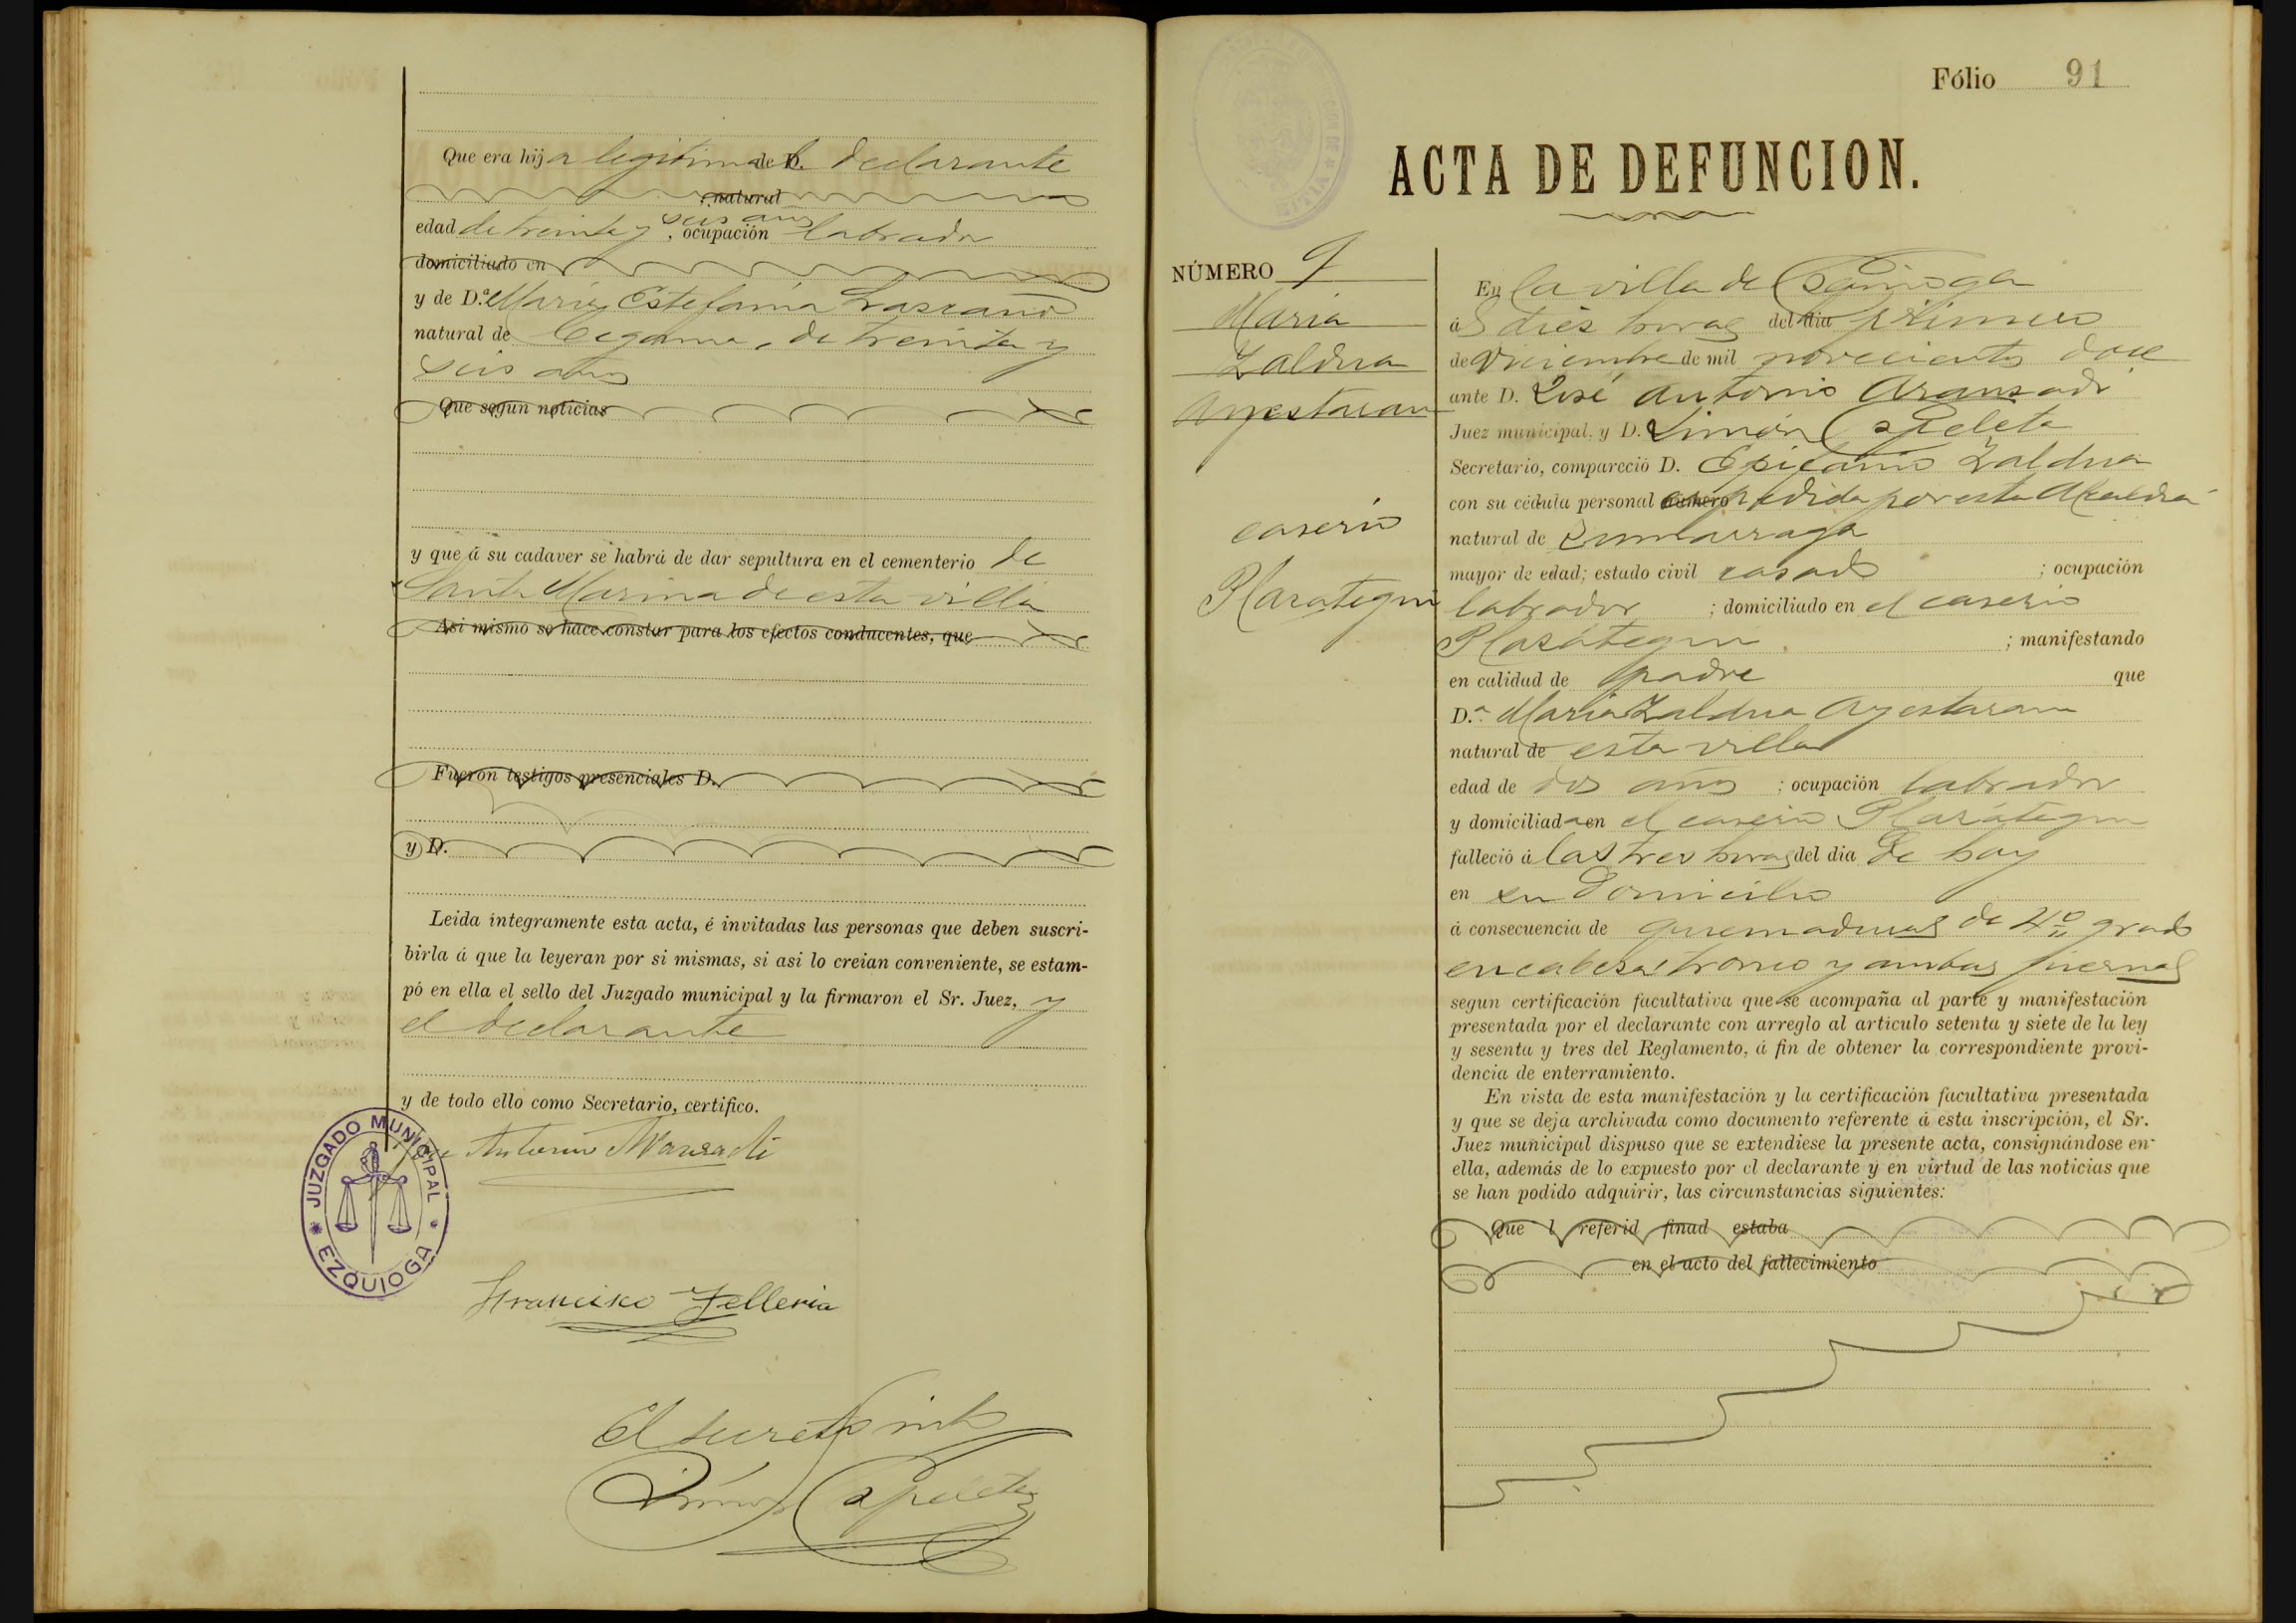 Que era hija legitima del declarante
, natural
edad de treinta y seis años, ocupación labrador
domiciliado en
y de D.ª Maria Estefania Lascano
natural de Cegama, de treinta y
seis años
Que segun noticias
y que á su cadaver se habrá de dar sepultura en el cementerio de
Santa Marina de esta villa
Asi mismo se hace constar para los efectos conducentes, que
Fueron testigos presenciales D.
y D.
Leida íntegramente esta acta, é invitadas las personas que deben suscri-
birla á que la leyeran por si mismas, si asi lo creian conveniente, se estam-
pó en ella el sello del Juzgado municipal y la firmaron el Sr. Juez, y
el declarante
y de todo ello como Secretario, certifico.
José Antonio Aranzadi
JUZGADO MUNICIPAL
EZQUIOGA
Francisco Telleria
El Secretario
Simón Apeleta
Fólio 91
ACTA DE DEFUNCION.
NÚMERO 9
Maria
Zaldua
Ayestaran
caserio
Plazategui
En la villa de
á diez horas del dia primero
de Diciembre de mil novecientos doce
ante D. José Antonio Aranzadi
Juez municipal, y D. Simón Apeleta
Secretario, compareció D. Epifanio Zaldua
con su cédula personal número expedida por esta Alcaldia
natural de Zumarraga
mayor de edad; estado civil casado ; ocupación
labrador ; domiciliado en el caserio
Plazategui ; manifestando
en calidad de padre que
D.ª Maria Zaldua Ayestaran
natural de esta villa
edad de dos años ; ocupación labrador
y domiciliada en el caserio Plazategui
falleció á las tres horas del dia de hoy
en su domicilio
á consecuencia de quemaduras de 4º grado
en cabeza tronco y ambas piernas
segun certificación facultativa que se acompaña al parte y manifestación
presentada por el declarante con arreglo al articulo setenta y siete de la ley
y sesenta y tres del Reglamento, á fin de obtener la correspondiente provi-
dencia de enterramiento.
En vista de esta manifestación y la certificación facultativa presentada
y que se deja archivada como documento referente á esta inscripción, el Sr.
Juez municipal dispuso que se extendiese la presente acta, consignándose en
ella, además de lo expuesto por el declarante y en virtud de las noticias que
se han podido adquirir, las circunstancias siguientes:
Que l referid finad estaba
en el acto del fallecimiento